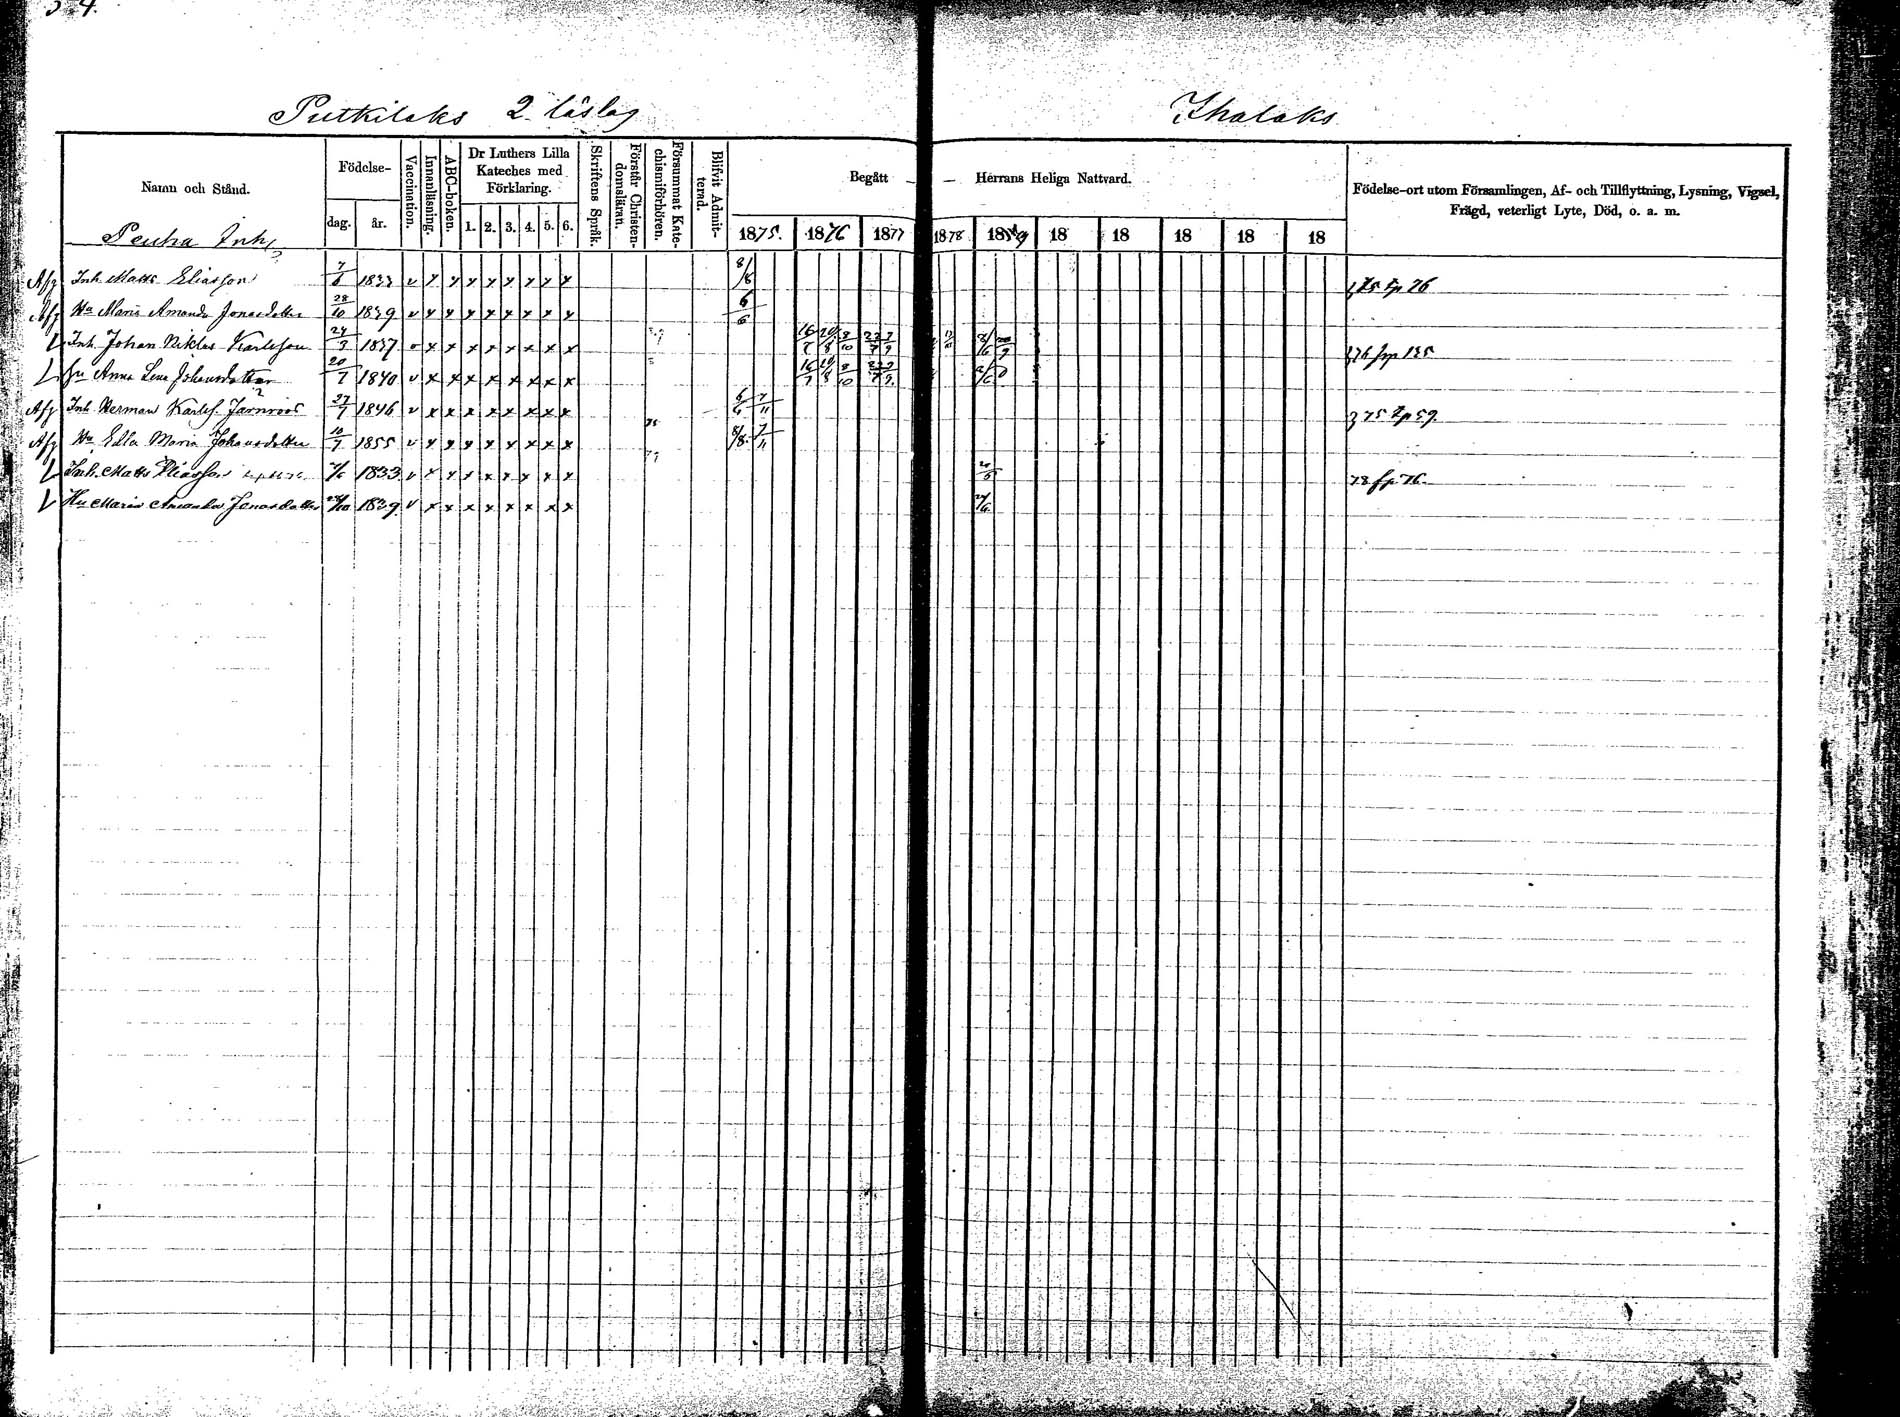 54.
Putkilaks 2 läslag Ihalaks
Namn och Stånd. Födelse- dag. år. Vaccination. Innanläsning. ABC-boken. Dr Luthers Lilla Kateches med Förklaring. 1. 2. 3. 4. 5. 6. Skriftens Språk. Förstår Christendomslärati. Försummat Katechismiförhören. Blifvit Admitterad. Begått Herrans Heliga Nattvard. 1875. 1876 1877 1878 1879 18 18 18 18 18 Födelse-ort utom Församlingen, Af- och Tillflyttning, Lysning, Vigsel, Frägd, veterligt Lyte, Död, o. a. m.
Penha Inh.
Afg Inh. Matts Eliasson 7/6 1833 v x x x x x x x x 8/8 75 fp 76
Afg Hu Maria Amanda Jonasdotter 28/10 1839 v x x x x x x x x 6/6
Inh. Johan Niklas Karlsson 24/3 1837 v x x x x x x x x 76 frp 135
Hu Anna Lena Johansdotter 20/7 1840 v x x x x x x x x
Afg Inh. Herman Karlss. Jarnroos 27/7 1846 v x x x x x x x x 6/6 7/11 75 fp 59.
Afg Hu Edla Maria Johansdotter 10/7 1855 v x x x x x x x x 8/8 7/11
Inh. Matts Eliasson 7/6 1833 v x x x x x x x x 78 fp 76
Hu Maria Amanda Jonasdotter 28/10 1839 v x x x x x x x x